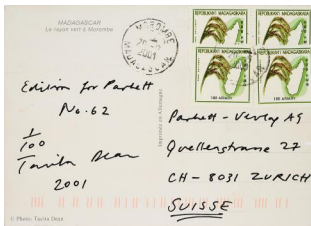 MADAGASCAR
Le rayon vert à Morombe
MOROMBE
2001
MADAGASCAR
REPOBLIKAN'I MADAGASIKARA
REPOBLIKAN'I MADAGASIKARA
100 ARIARY
Edition for Parkett
No. 62
1/100
Tacita Dean
2001
Imprimé en Allemagne
Parkett-Verlag AG
Quellenstrasse 27
CH-8031 ZURICH
SUISSE
© Photo: Tacita Dean